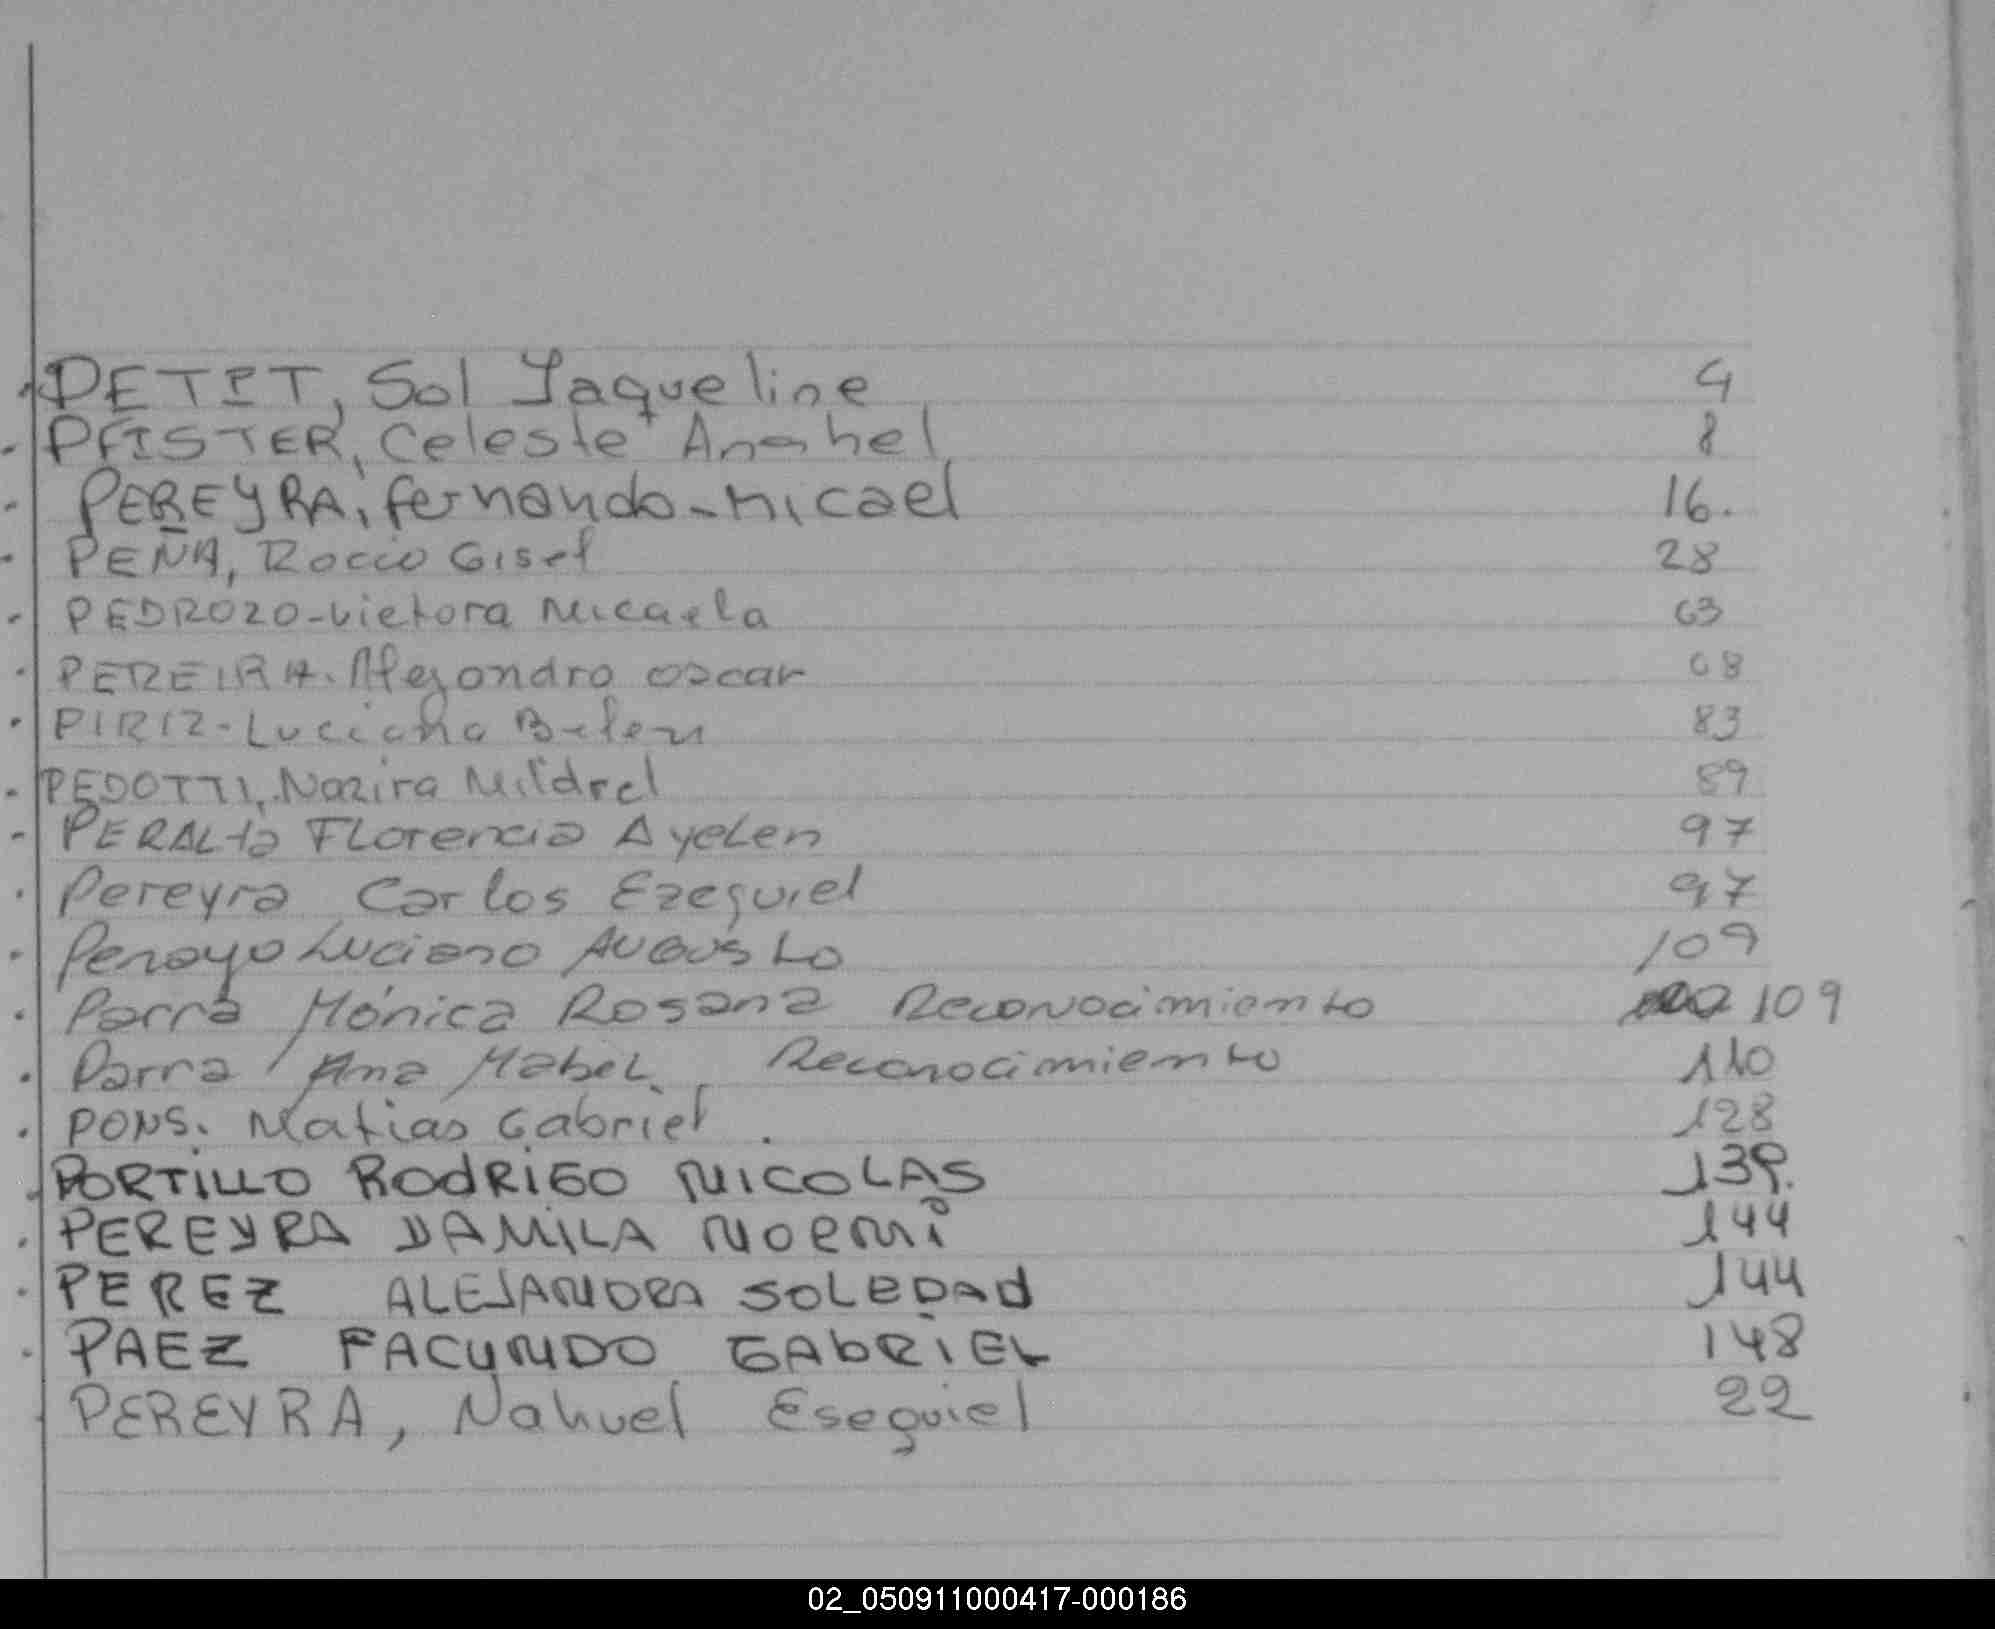 PETIT, Sol Jaqueline 4
PFISTER, Celeste Anahel 8
PEREYRA, fernando-micael 16.
PEÑA, Rocio Gisel 28
PEDROZO-Victora Micaela 63
PEREIRA. Alejandro oscar 68
PIRIZ-Luciana Belen 83
PEDOTTI, Nazira Mildred 89
PERALta FLorencia AyeLen 97
Pereyra Carlos Ezequiel 97
Penayo Luciano AUGUSto 109
Parra Mónica Rosana Reconocimiento 109
Parra Ana Mabel. Reconocimiento 110
PONS. Matias Gabriel. 128
PORTiLLO RodRiGO NICOLAS 139.
PEREYRA DAMiLA NOEMi 144
PEREZ ALEJANDRA SOLEDAd 144
PAEZ FACUNDO GAbRiEL 148
PEREYRA, Nahuel Esequiel 22
02_050911000417-000186